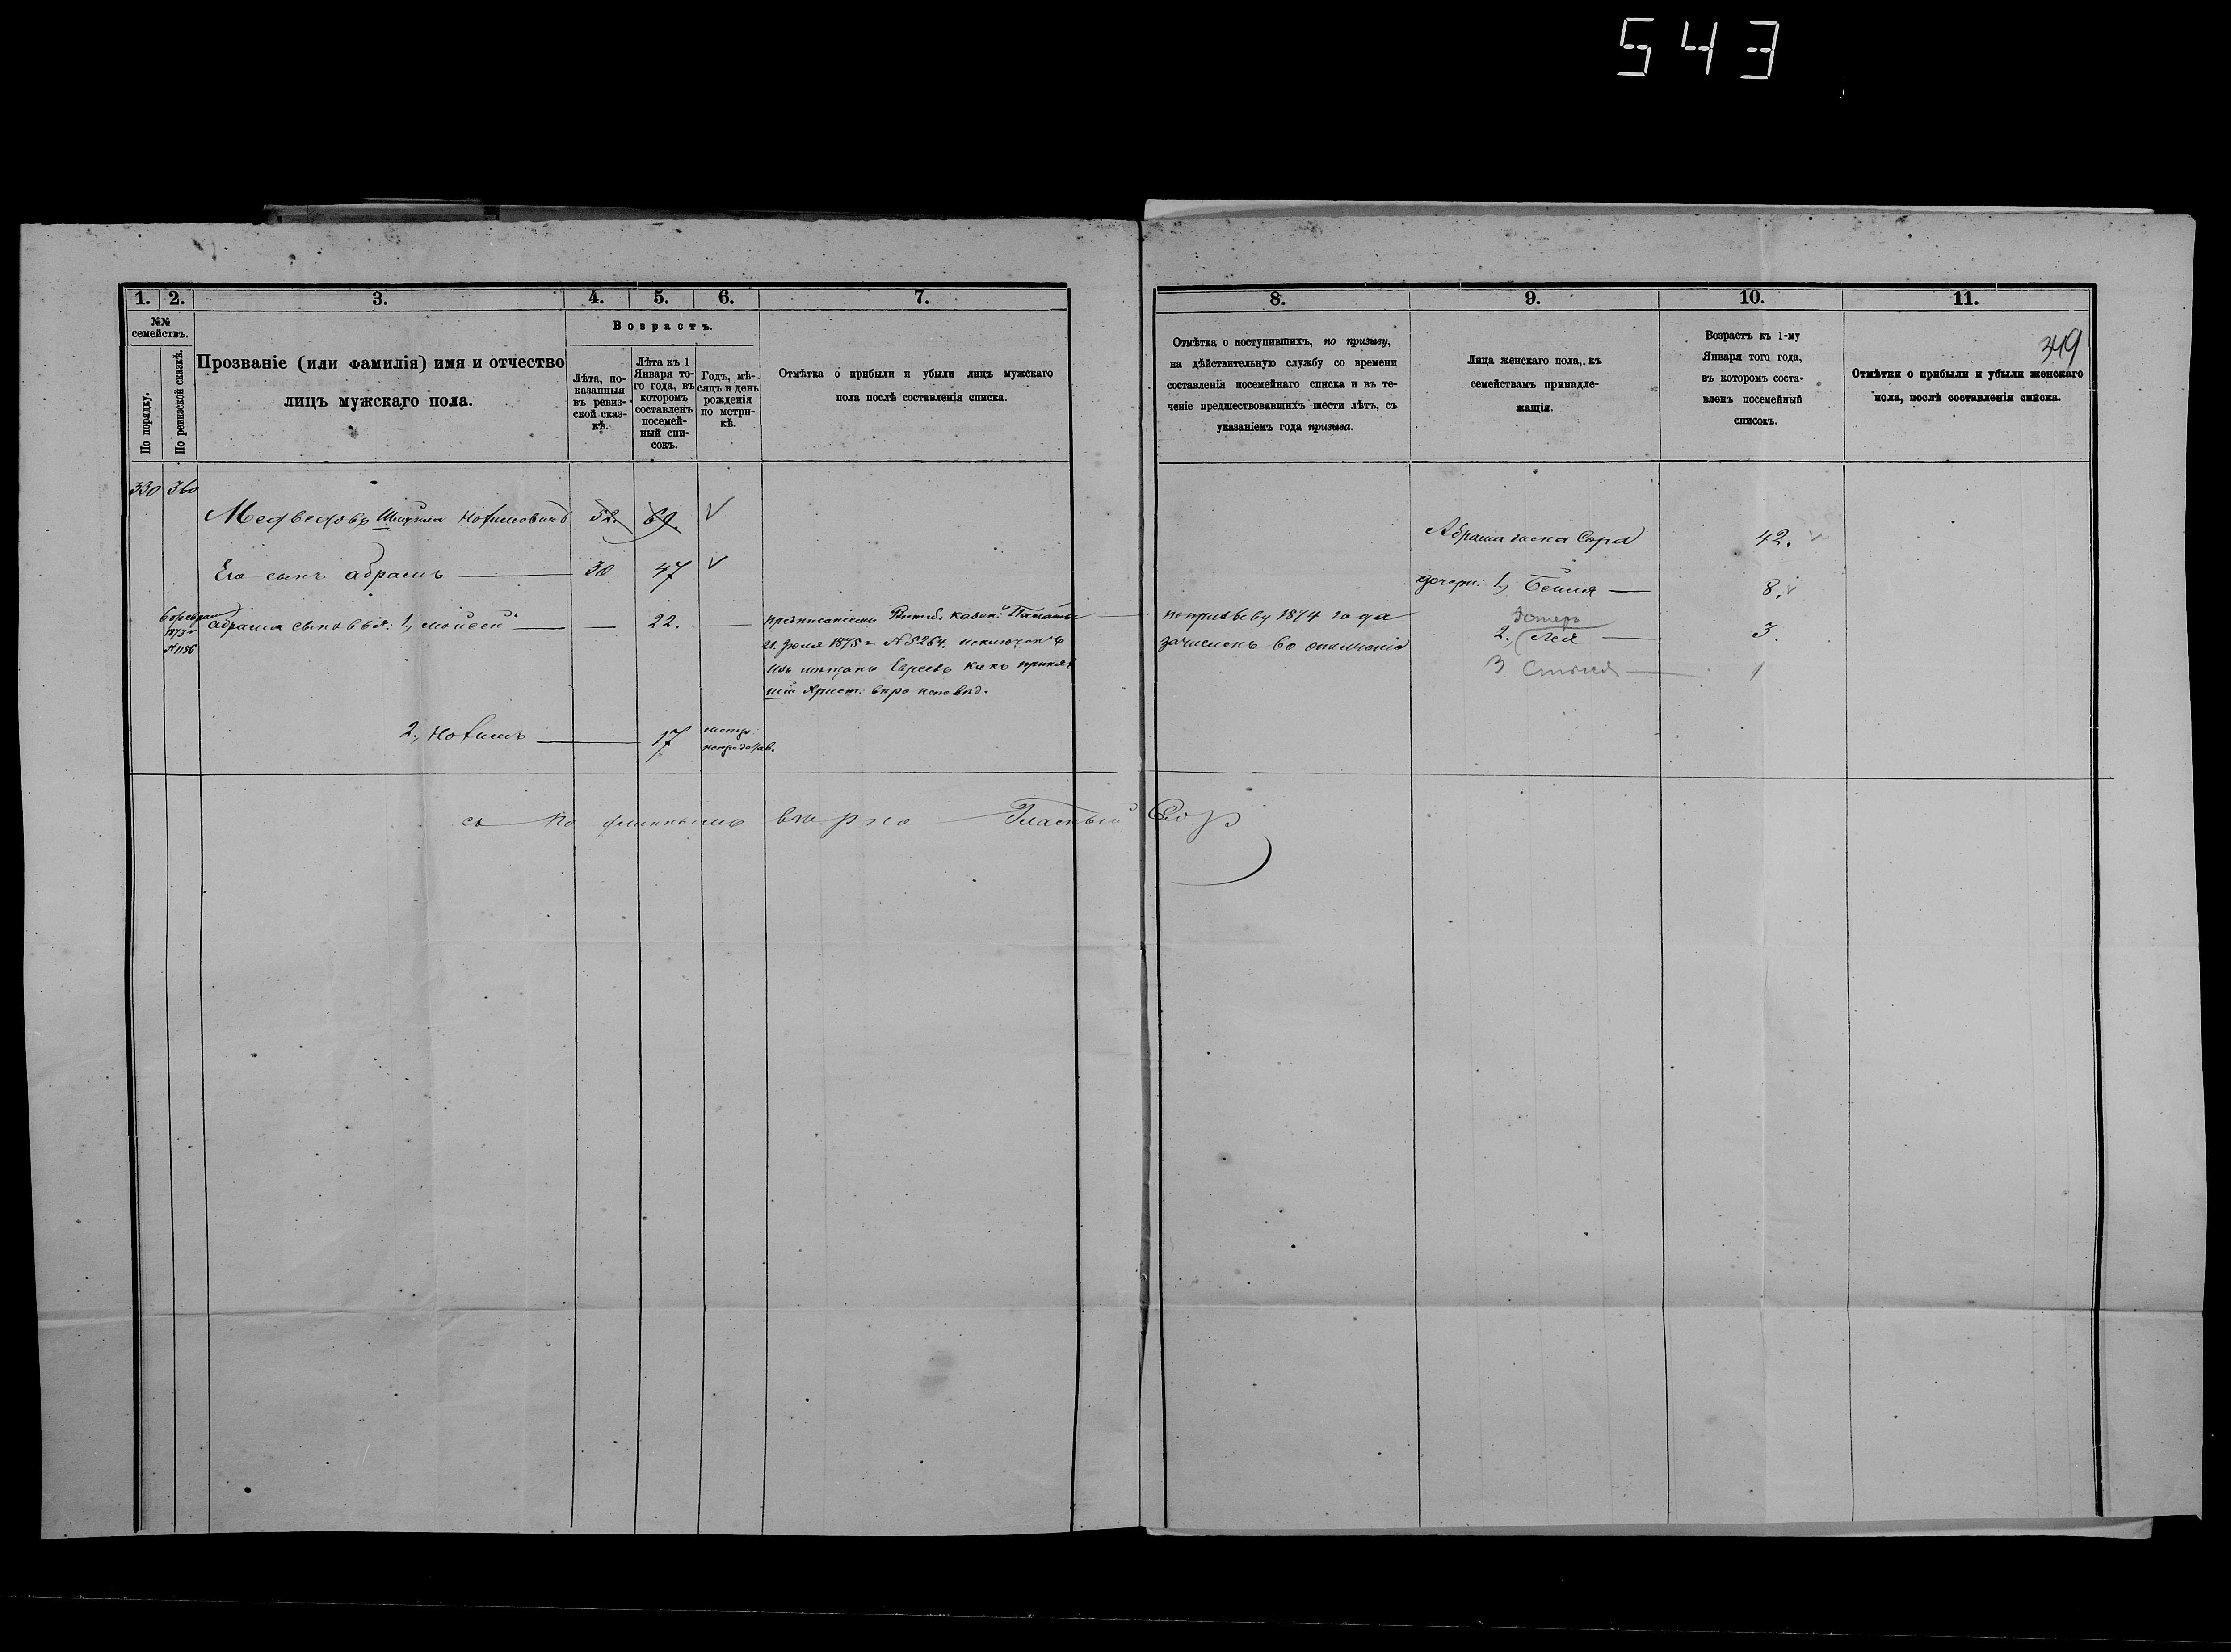 543
349
1. 2. 3. 4. 5. 6. 7.
№№ семействъ.
По порядку.
По ревизской сказкѣ.
Прозваніе (или фамилія) имя и отчество
лицъ мужскаго пола.
Возрастъ.
Лѣта, по-
казанныя
въ ревиз-
ской сказ-
кѣ.
Лѣта къ 1
Января то-
го года, въ
которомъ
составленъ
посемей-
ный спи-
сокъ.
Годъ, мѣ-
сяцъ и день
рожденія
по метри-
кѣ.
Отмѣтка о прибыли и убыли лицъ мужскаго
пола послѣ составленія списка.
330 360
Медведовъ Нохимовичъ 52. 69. √
Его сынъ абрамъ 30 47 √
1873 г
№1196
абрама сыновья: 1, мойсей — 22. —
предписаніемъ Витеб. казен: Палаты
21 Іюля 1875 г №5264. исключенъ
изъ мѣщанъ Евреевъ какъ приняв
шій Христ: вѣро исповѣд.
2, Нохимъ — 17
съ подлиннымъ вѣрно Гласный
8. 9. 10. 11.
Отмѣтка о поступившихъ, по призыву,
на дѣйствительную службу со времени
составленія посемейнаго списка и въ те-
ченіе предшествовавшихъ шести лѣтъ, съ
указаніемъ года призыва.
Лица женскаго пола, къ
семействамъ принадле-
жащія.
Возрастъ къ 1-му
Января того года,
въ которомъ соста-
вленъ посемейный
списокъ.
Отмѣтки о прибыли и убыли женскаго
пола, послѣ составленія списка.
по призыву 1874 года
зачисленъ во ополченіе
Абрама жена Сора 42. √
дочери: 1, Бейля — 8. √
Эстеръ
2, Лея — 3.
3 — 1